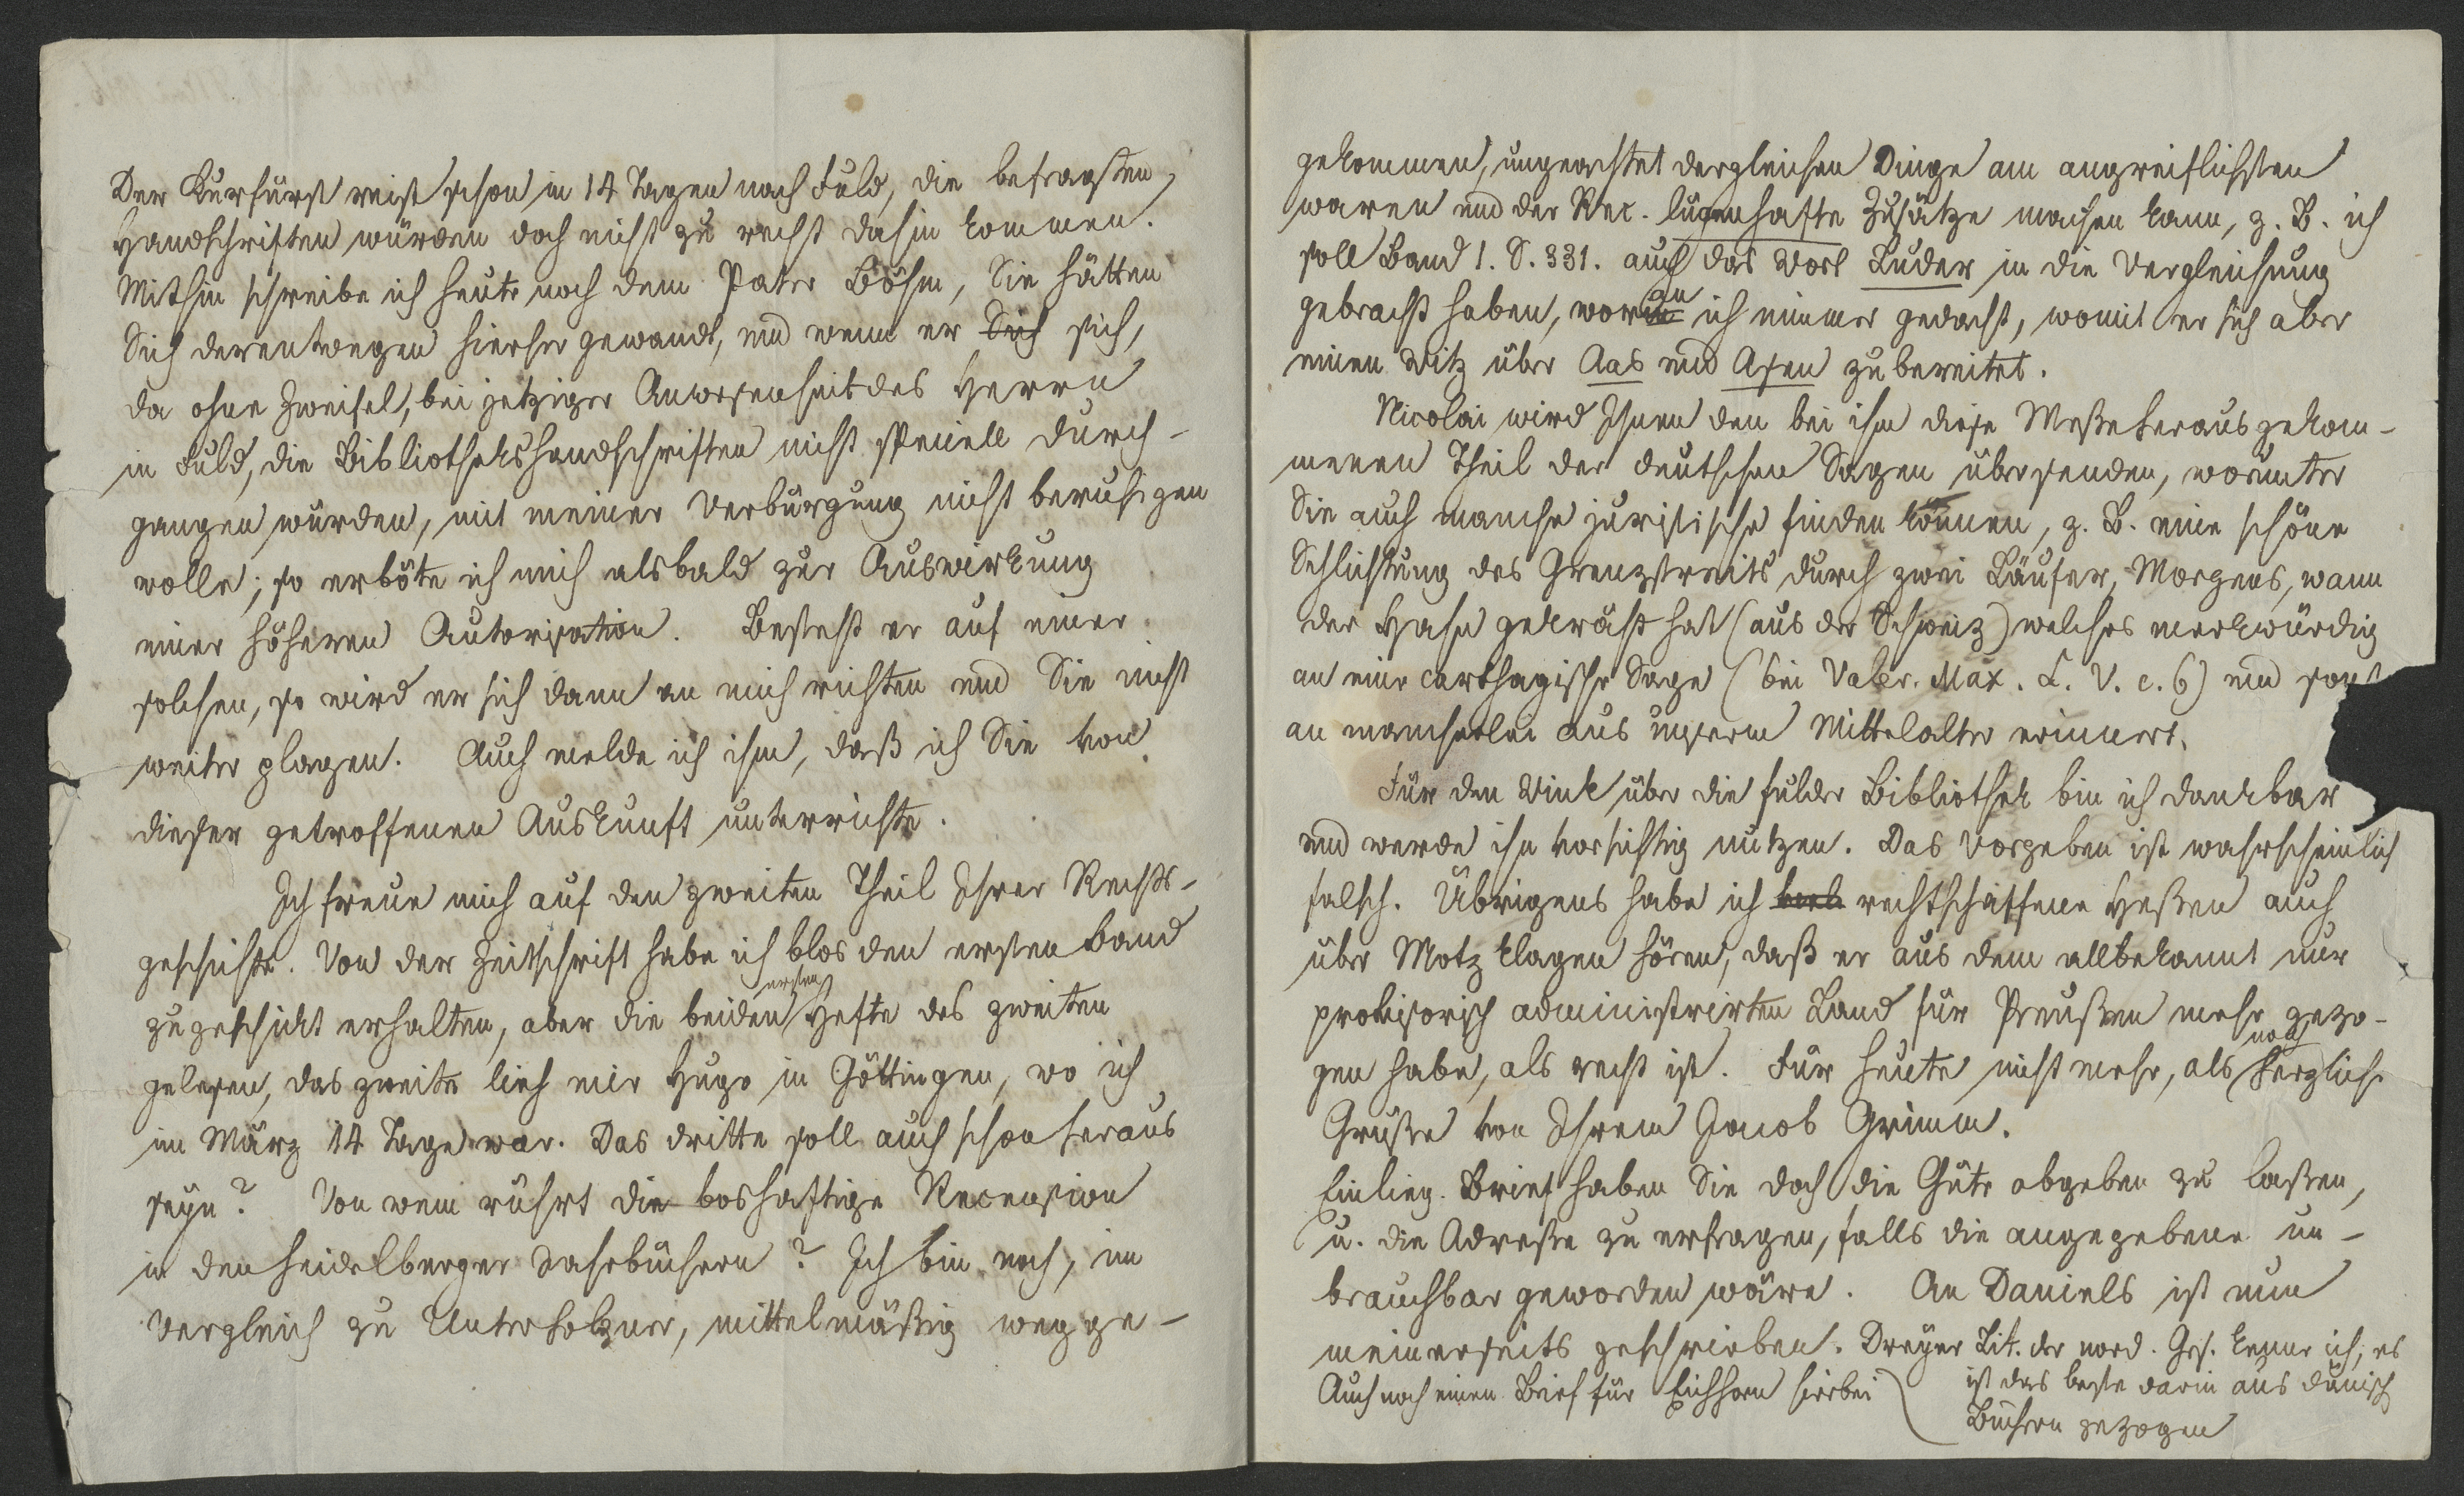 Der Kurfürst reist schon in 14 Tagen nach Fuld, die befragten
Handschriften würden doch nicht zu recht dahin kommen.
Mithin schreibe ich heute noch dem Pater Böhm, Sie hätten
Sich derentwegen hierher gewandt, und wenn er Sich sich,
da ohne Zweifel, bei jetziger Anwesenheit des Herrn
in Fuld, die Bibliothekshandschriften nicht speciell durch-
gangen würden, mit meiner Verbürgung nicht beruhigen
wolle; so erböte ich mich alsbald zur Auswirkung
einer höheren Autorisation. Besteht er auf einer
solchen, so wird er sich dann an mich richten und Sie nicht
weiter plagen. Auch melde ich ihm, daß ich Sie von
dieser getroffenen Auskunft unterrichte.
Ich freue mich auf den zweiten Theil Ihrer Rechts-
geschichte. Von der Zeitschrift habe ich blos den ersten Band
zugeschickt erhalten, aber die beiden ersten Hefte des zweiten
gelesen, das zweite lieh mir Hugo in Göttingen, wo ich
im März 14 Tage war. Das dritte soll auch schon heraus
seyn? Von wem rührt die boshaftige Recension
in den heidelberger Jahrbüchern? Ich bin noch, im
Vergleich zu Unterholzner, mittelmäßig wegge-
gekommen, ungeachtet dergleichen Dinge am angreiflichsten
waren und der Rec. lügenhafte Zusätze machen kann, z. B. ich
soll Band 1. S. 331. auch das Wort Luder in die Vergleichung
gebracht haben, woran ich nimmer gedacht, womit er sich aber
einen Witz über Aas und Asen zubereitet.
Nicolai wird Ihnen den bei ihm diese Messe herausgekom-
menen Theil der deutschen Sagen übersenden, worunter
Sie auch manche juristische finden können, z. B. eine schöne
Schlichtung des Grenzstreits durch zwei Läufer, Morgens, wann
der Hahn gekräht hat (aus der Schweiz) welches merkwürdig
an eine carthagische Sage (bei Valer. Max. L. V. c. 6) und sonst
an mancherlei aus unserm Mittelalter erinnert.
Für den Wink über die fulder Bibliothek bin ich dankbar
und werde ihn vorsichtig nutzen. Das Vorgeben ist wahrscheinlich
falsch. Übrigens habe ich rechtschaffene Heßen auch
über Motz klagen hören, daß er aus dem allbekannt nur
provisorisch administrirten Land für Preußen mehr gezo-
gen habe, als recht ist. Für heute nicht mehr, als noch herzliche
Grüße von Ihrem Jacob Grimm.
Einlieg. Brief haben Sie doch die Güte abgeben zu laßen,
u. die Adreße zu erfragen, falls die angegebene un-
brauchbar geworden wäre. An Daniels ist nun
meinerseits geschrieben. Dreyer Lit. der nord. Ges. kenne ich, es
ist das beste darin aus dänisch
Büchern gezogen
Auch noch einen Brief für Eichhorn hierbei